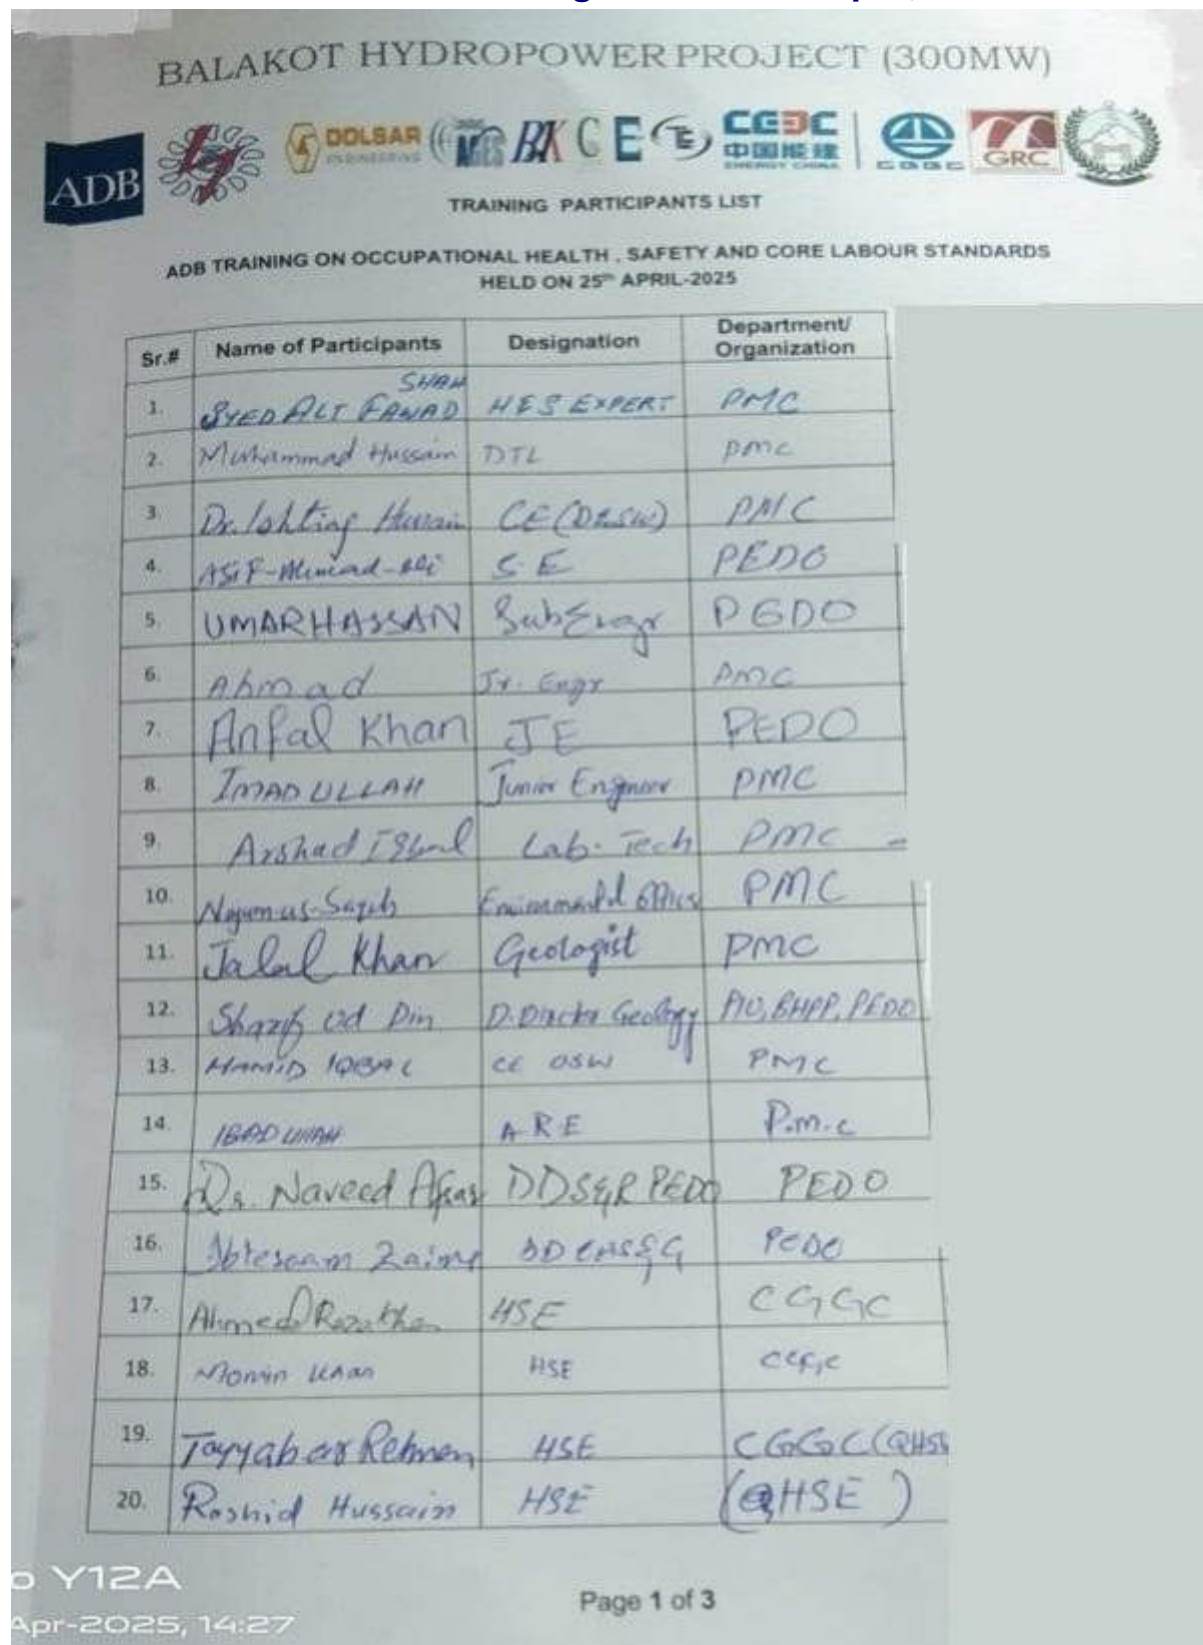 BALAKOT HYDROPOWER PROJECT (300MW)
ADB DOLSAR ENGINEERING AGES BAK C E TE CEEC 中国能建 ENERGY CHINA CGGC GRC
TRAINING PARTICIPANTS LIST
ADB TRAINING ON OCCUPATIONAL HEALTH , SAFETY AND CORE LABOUR STANDARDS
HELD ON 25th APRIL-2025
Sr.# Name of Participants Designation Department/ Organization
1. SYED ALI FAWAD SHAH HES EXPERT PMC
2. Muhammad Hussain DTL PMC
3. Dr. Hussain CE PMC
4. ASIF-Ahmad-Ali S.E PEDO
5. UMAR HASSAN Sub Engr PEDO
6. Ahmad Jr. Engr PMC
7. Anfal Khan JE PEDO
8. IMAD ULLAH Junior Engineer PMC
9. Arshad Iqbal Lab. Tech PMC
10. Najum-us-Saqib Environmental PMC
11. Jalal Khan Geologist PMC
12. Sharif Ud Din D.Director Geology PIU, BHPP, PEDO
13. HAMID IQBAL CE OSW PMC
14. IBAD ULLAH ARE P.m.c
15. Dr. Naveed DDS&R PEDO PEDO
16. PEDO
17. Ahmed HSE CGGC
18. Momin Khan HSE CGGC
19. Tayyab ur Rehman HSE CGGC (QHSE
20. Rashid Hussain HSE (QHSE)
Page 1 of 3
o Y12A
Apr-2025, 14:27